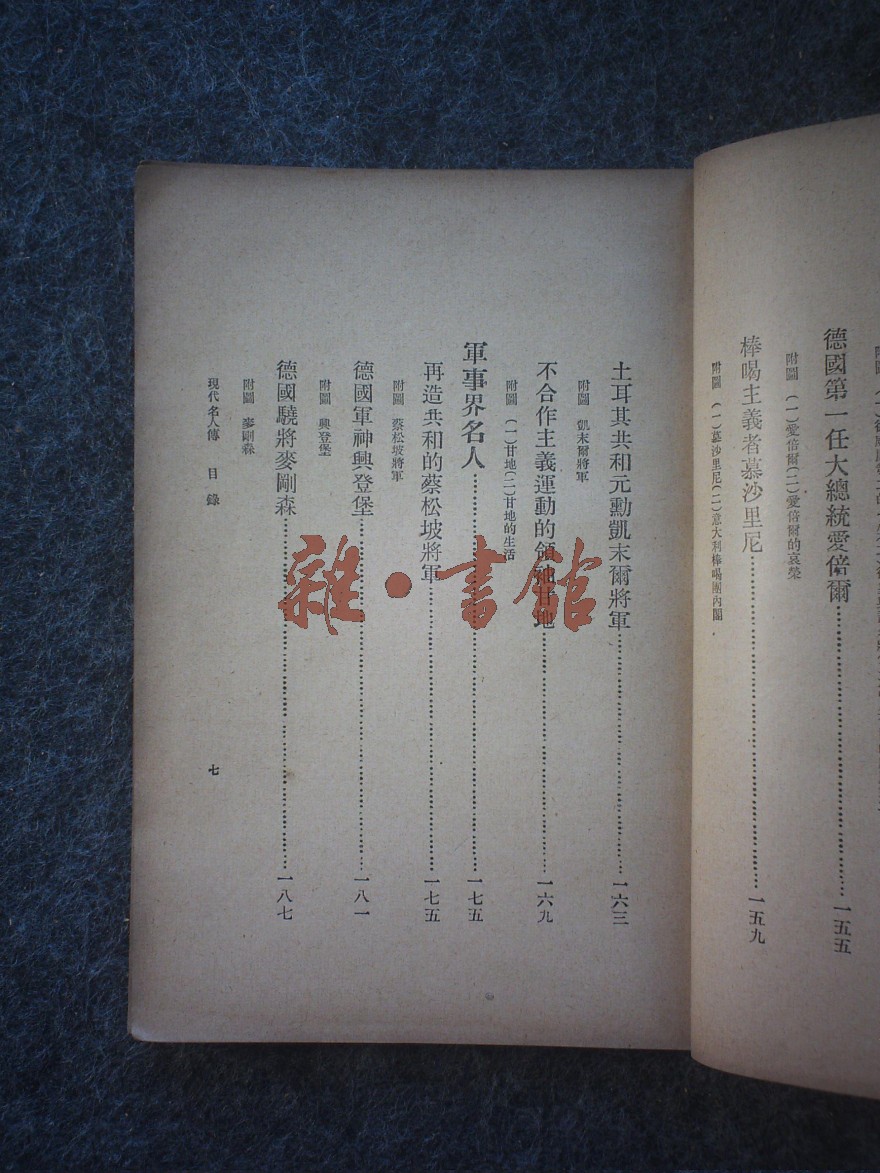 德國第一任大總統愛倍爾……一五五
附圖　(一)愛倍爾(二)愛倍爾的哀榮
棒喝主義者慕沙里尼……一五九
附圖　(一)慕沙里尼(二)意大利棒喝團內閣
土耳其共和元勳凱末爾將軍……一六三
附圖　凱末爾將軍
不合作主義運動的領袖甘地……一六九
附圖　(一)甘地(二)甘地的生活
軍事界名人……一七五
再造共和的蔡松坡將軍……一七五
附圖　蔡松坡將軍
德國軍神興登堡……一八一
附圖　興登堡
德國驍將麥剛森……一八七
附圖　麥剛森
現代名人傳　目錄　七
雜·書館